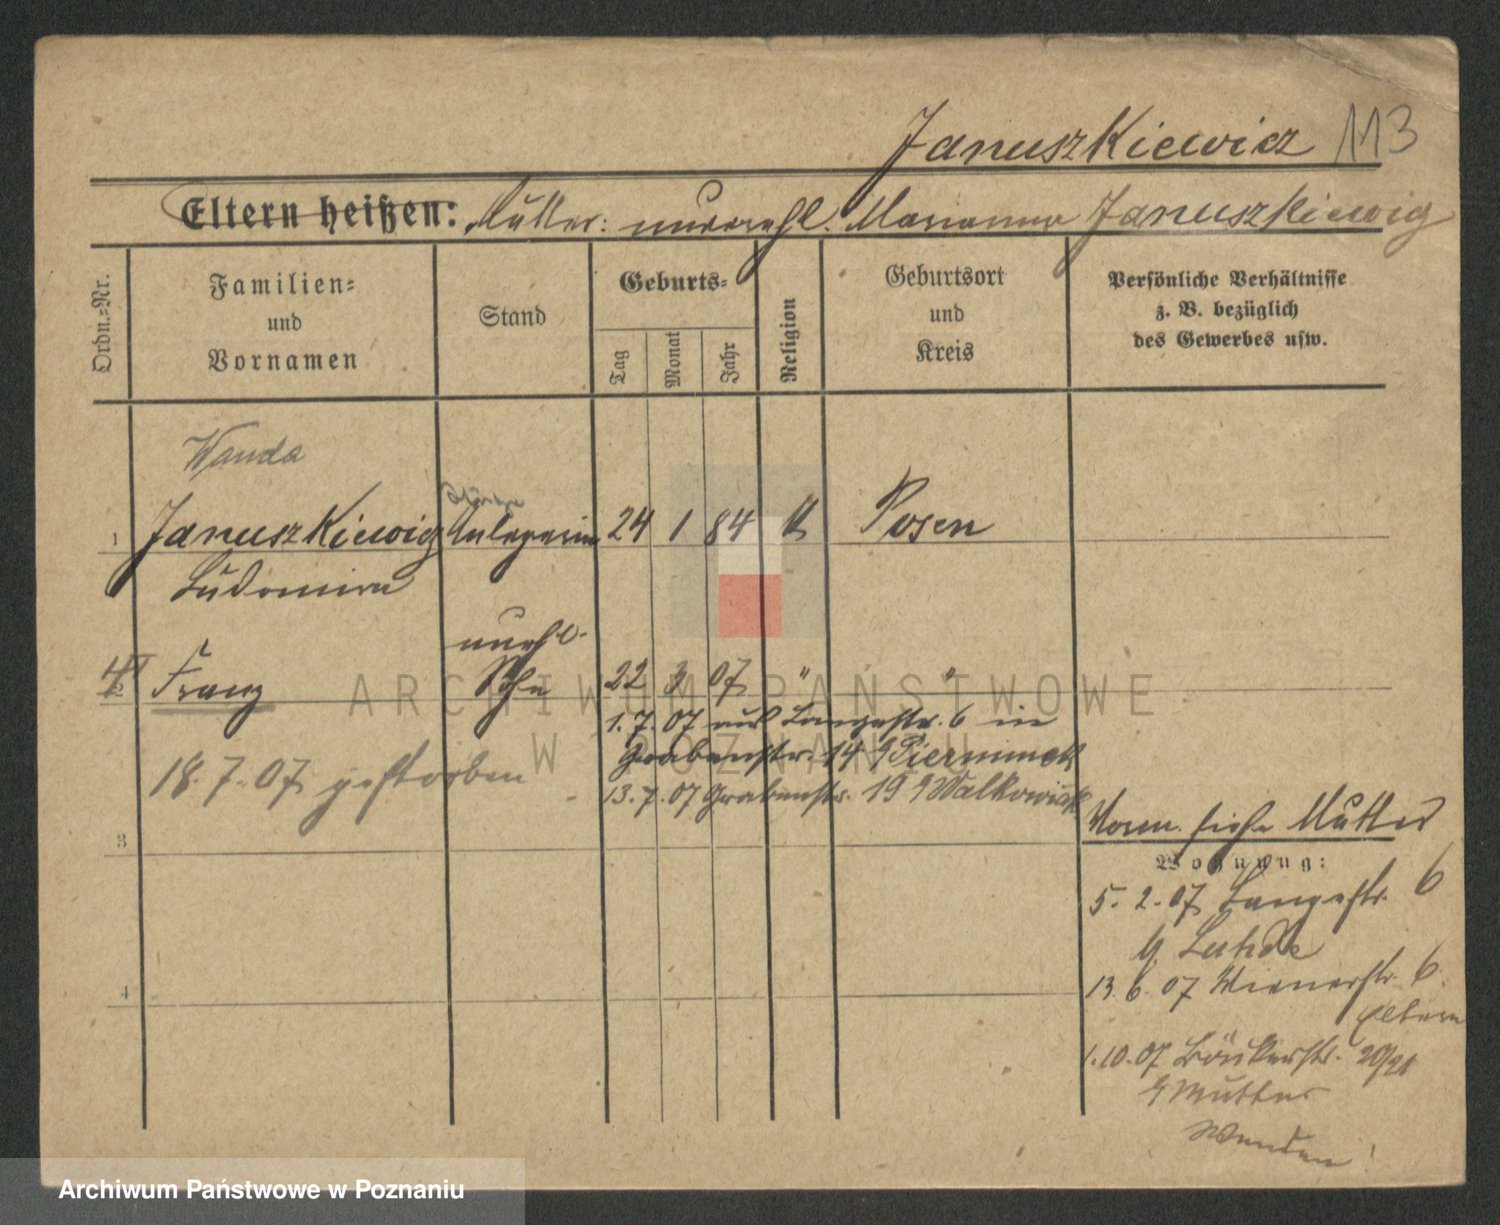 Januszkiewicz 113
Eltern heißen: Mutter: unverehl. Marianna Januszkiewicz
Ordn.-Nr.
Familien-
und
Vornamen
Stand
Geburts-
Tag
Monat
Jahr
Religion
Geburtsort
und
Kreis
Persönliche Verhältnisse
z. B. bezüglich
des Gewerbes usw.
Wanda
1 Januszkiewicz Anlegerin 24 1 84 k Posen
Ludomira
unehl.
2 Franz Sohn 22 3 07 " "
1.7.07 aus Langestr. 6 in
Grabenstr. 14
18.7.07 gestorben
13.7.07 Grabenstr. 19 b/Walkowiak
3
Vorm. siehe Mutter
Wohnung:
5.2.07 Langestr. 6
b/
13.6.07 Wienerstr. 6
Eltern
4
1.10.07 20/21
b/Mutter
Wenden!
ARCHIWUM PAŃSTWOWE
W POZNANIU
Archiwum Państwowe w Poznaniu